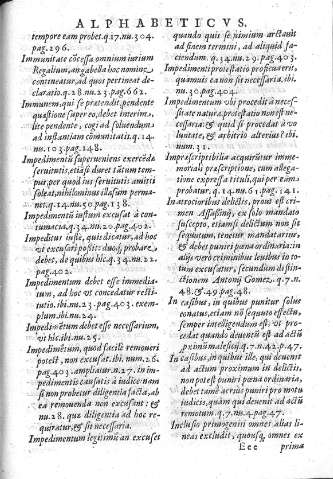 ALPHABETICVS.
tempore eam probet.q.17.nu.304.
pag.296.
Immunitate cōcessa omnium iurium
Regalium, an gabella hoc nomine
contineatur, ad quos pertineat de-
claratio.q.28.nu.23.pag.662.
Immunem, qui se prætendit, pendente
quæstione super eo, debet interim,
lite pendente, cogi ad soluendum
ad instantiam communitatis.q.14.
nu.103.pag.148.
Impedimentū superueniens exercēda
seruitutis, etiā si duret tātum tem-
pus, per quod ius seruitutis amitti
soleat, nihilominus illæsum perma-
net.q.14.nu.30.pag.138.
Impedimentū iustum excusat à con-
tumacia.q.34.nu.20.pag.402.
Impeditus iuste, quis dicatur, ad hoc
vt excusari possit: & quomodo, probare
debet, de quibus hic.q.34.nu.22.
pag.402.
Impedimentum debet esse immedia-
tum, ad hoc vt concedatur resti-
tutio.ibi.nu.23.pag.403.exem-
plum.ibi.nu.24.
Impedimētum debet esse necessarium,
vt hic.ibi.nu.25.
Impedimētum, quod facile remoueri
potest, non excusat.ibi.num.26.
pag.403.ampliatur.n.27.in im-
pedimentis causatis à iudice: nam
si non probetur diligentia facta, ab
ea remouenda non excusant: &
nu.28. quæ diligentia ad hoc re-
quiratur, & si sit necessaria.
Impedimentum legitimū an excuset
quando quis se nimium arctauit
ad finem termini, ad aliquid fa-
ciendum.q.34.nu.29.pag.403.
Impedimenti protestatio proficua erit,
quamuis canon sit necessaria, ibi.
nu.30.pag.404.
Impedimentum vbi procedit à neces-
sitate naturæ protestatio non est ne-
cessaria: & quid si procedat à vo-
luntate, & arbitrio alterius? ibi.
num.31.
Imprascriptibilia acquirūtur imme-
moriali præscriptione, cum allega-
tione expressa tituli, qui per eam
probatur.q.14.nu.61.pag.141.
In atrocioribus delictis, prout est cri-
men Assasinij, ex solo mandato
suscepto, etiam si delictum non sit
sequutum, tenetur mandatarius,
& debet puniri pœna ordinaria: in
alijs verò criminibus leuibus in to-
tum excusatur, secundum distin-
ctionem Antonij Gomez.q.7.n.
48.&49.pag.48.
In casibus, in quibus punitur solus
conatus, etiam nō sequuto effectu,
semper intelligendum est, vt pro-
cedat quando deuentū est ad actū
proximū delicti.q.7.n.42.p.47.
In casibus, in quibus ille, qui deuenit
ad actum proximum in delictis,
non potest puniri pœna ordinaria,
debet tamē acrius puniri pro motu
iudicis, quàm qui deuenit ad actū
remotum.q.7.nu.4.pag.47.
Inclusio primogeniti omnes alias li-
neas excludit, quousq; omnes ex
Eee prima